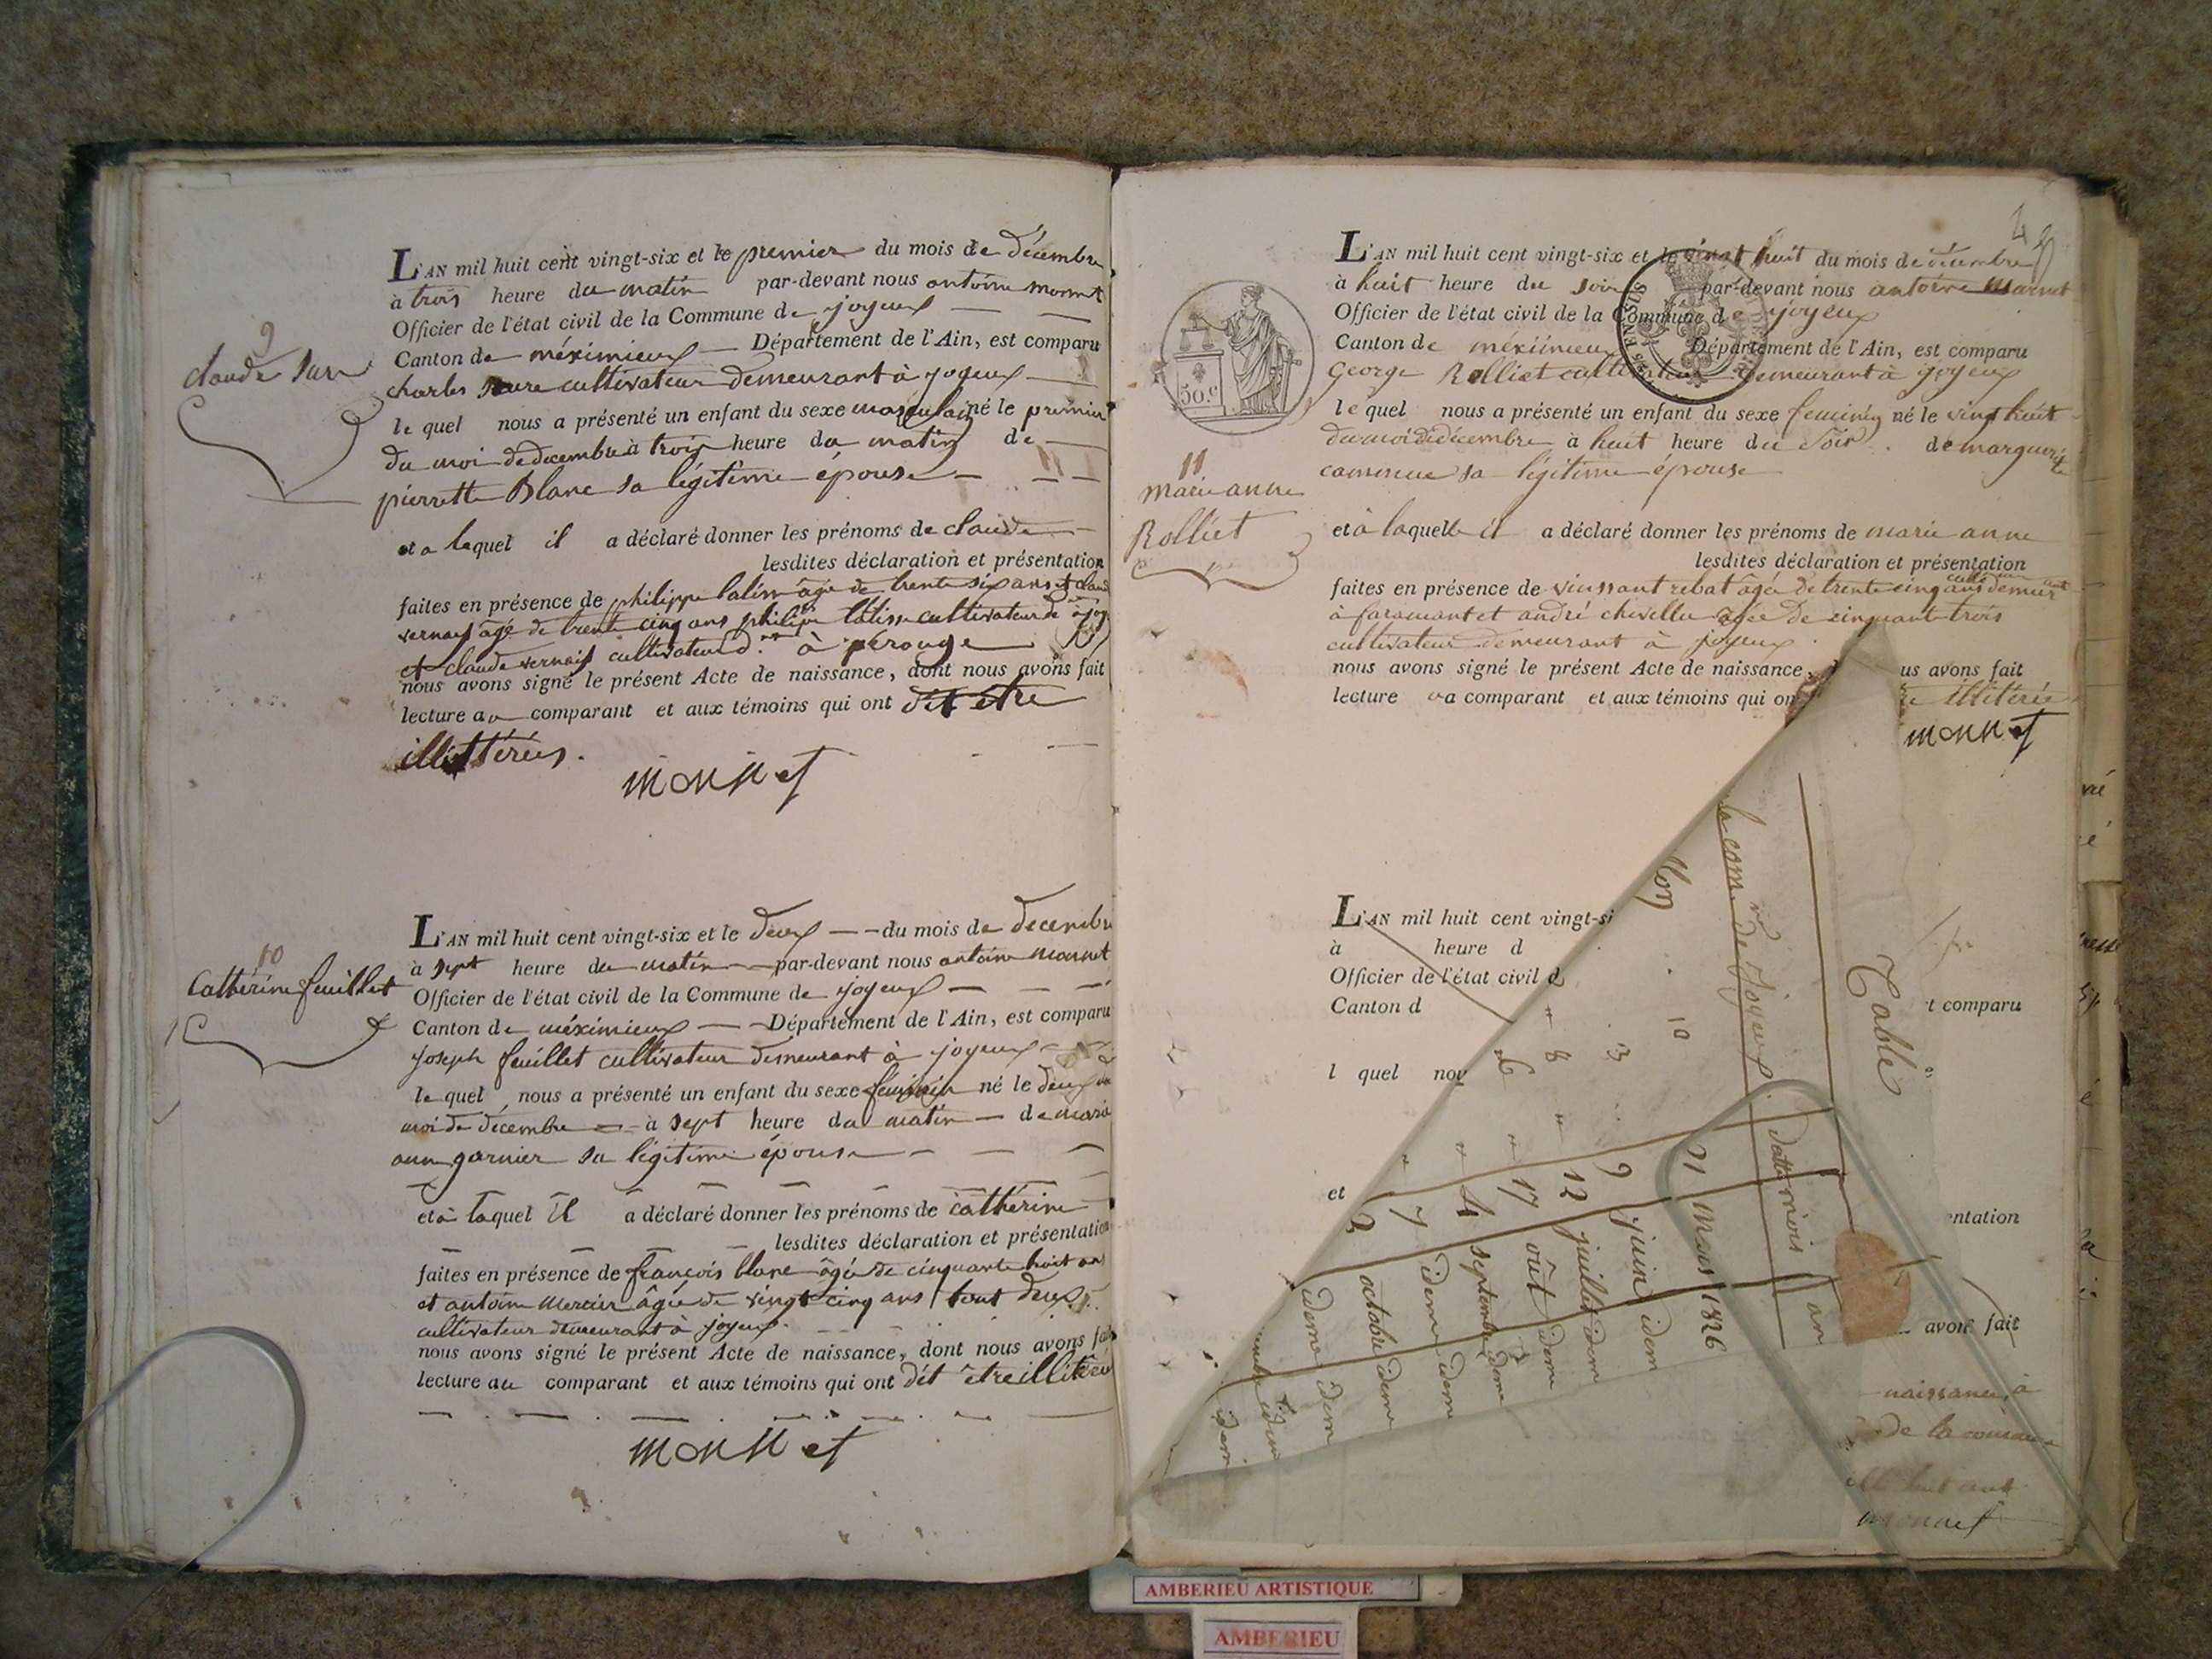 9
claude Sure
L'AN mil huit cent vingt-six et le premier du mois de décembre
à trois heure du matin par-devant nous antoine monnet
Officier de l'état civil de la Commune de joyeux
Canton de méximieux Département de l'Ain, est comparu
charles Sure cultivateur demeurant à joyeux
le quel nous a présenté un enfant du sexe masculain né le premier
du moi de decembre à trois heure du matin de
pierrette Blanc sa légitime épouse
et a lequel il a déclaré donner les prénoms de claude
lesdites déclaration et présentation
faites en présence de philippe âgé de trente six ans et claude
vernais âgé de trente cinq ans philipe cultivateur de
et claude vernais cultivateur d. à pérouge
nous avons signé le présent Acte de naissance, dont nous avons fait
lecture au comparant et aux témoins qui ont dit etre
illittérées.
monnet
10
Catherine feuillet
L'AN mil huit cent vingt-six et le deux du mois de decembre
à sept heure du matin par-devant nous antoine monnet
Officier de l'état civil de la Commune de joyeux
Canton de méximieux Département de l'Ain, est comparu
joseph feuillet cultivateur demeurant à joyeux
le quel nous a présenté un enfant du sexe féminin né le deux du
moi de décembre à sept heure du matin de marie
anne garnier sa légitime épouse
et à laquel il a déclaré donner les prénoms de catherine
lesdites déclaration et présentation
faites en présence de françois blanc âgée de cinquante huit ans
et antoine mercier âgée de vingt cinq ans tout deux
cultivateur demeurant à joyeux
nous avons signé le présent Acte de naissance, dont nous avons fait
lecture au comparant et aux témoins qui ont dit être illitérée
monnet
L'AN mil huit cent vingt-six et le vingt huit du mois de décembre
à huit heure du soir par-devant nous antoine monnet
Officier de l'état civil de la Commune de joyeux
Canton de méximieu Département de l'Ain, est comparu
george Rolliet cultivateur demeurant à joyeux
50.c
le quel nous a présenté un enfant du sexe feminin né le vingt huit
du moi de décembre à huit heure du soir de marguerite
sa légitime épouse
11
marie anne
Rolliet
et à laquelle il a déclaré donner les prénoms de marie anne
lesdites déclaration et présentation
faites en présence de vinssant rebat âgée de trente cinq ans demeurt
à faramant et andré chevellu agée de cinquante trois
cultivateur demeurant à joyeux
nous avons signé le présent Acte de naissance, us avons fait
lecture a comparant et aux témoins qui on illitérée
monnet
L'AN mil huit cent vingt-si
à heure d
Officier de l'état civil d
Canton d
t comparu
l quel nou
et
entation
avons fait
naissance à
de la commune
monnet
Table
la comm.ne de Joyeux
datte mois an
10 21 mars 1826
3 9 juin idem
8 12 juillet idem
6 17 oût idem
4 septembre idem
7 idem idem
2 octobre idem
idem idem
idem
idem
AMBERIEU ARTISTIQUE
AMBERIEU